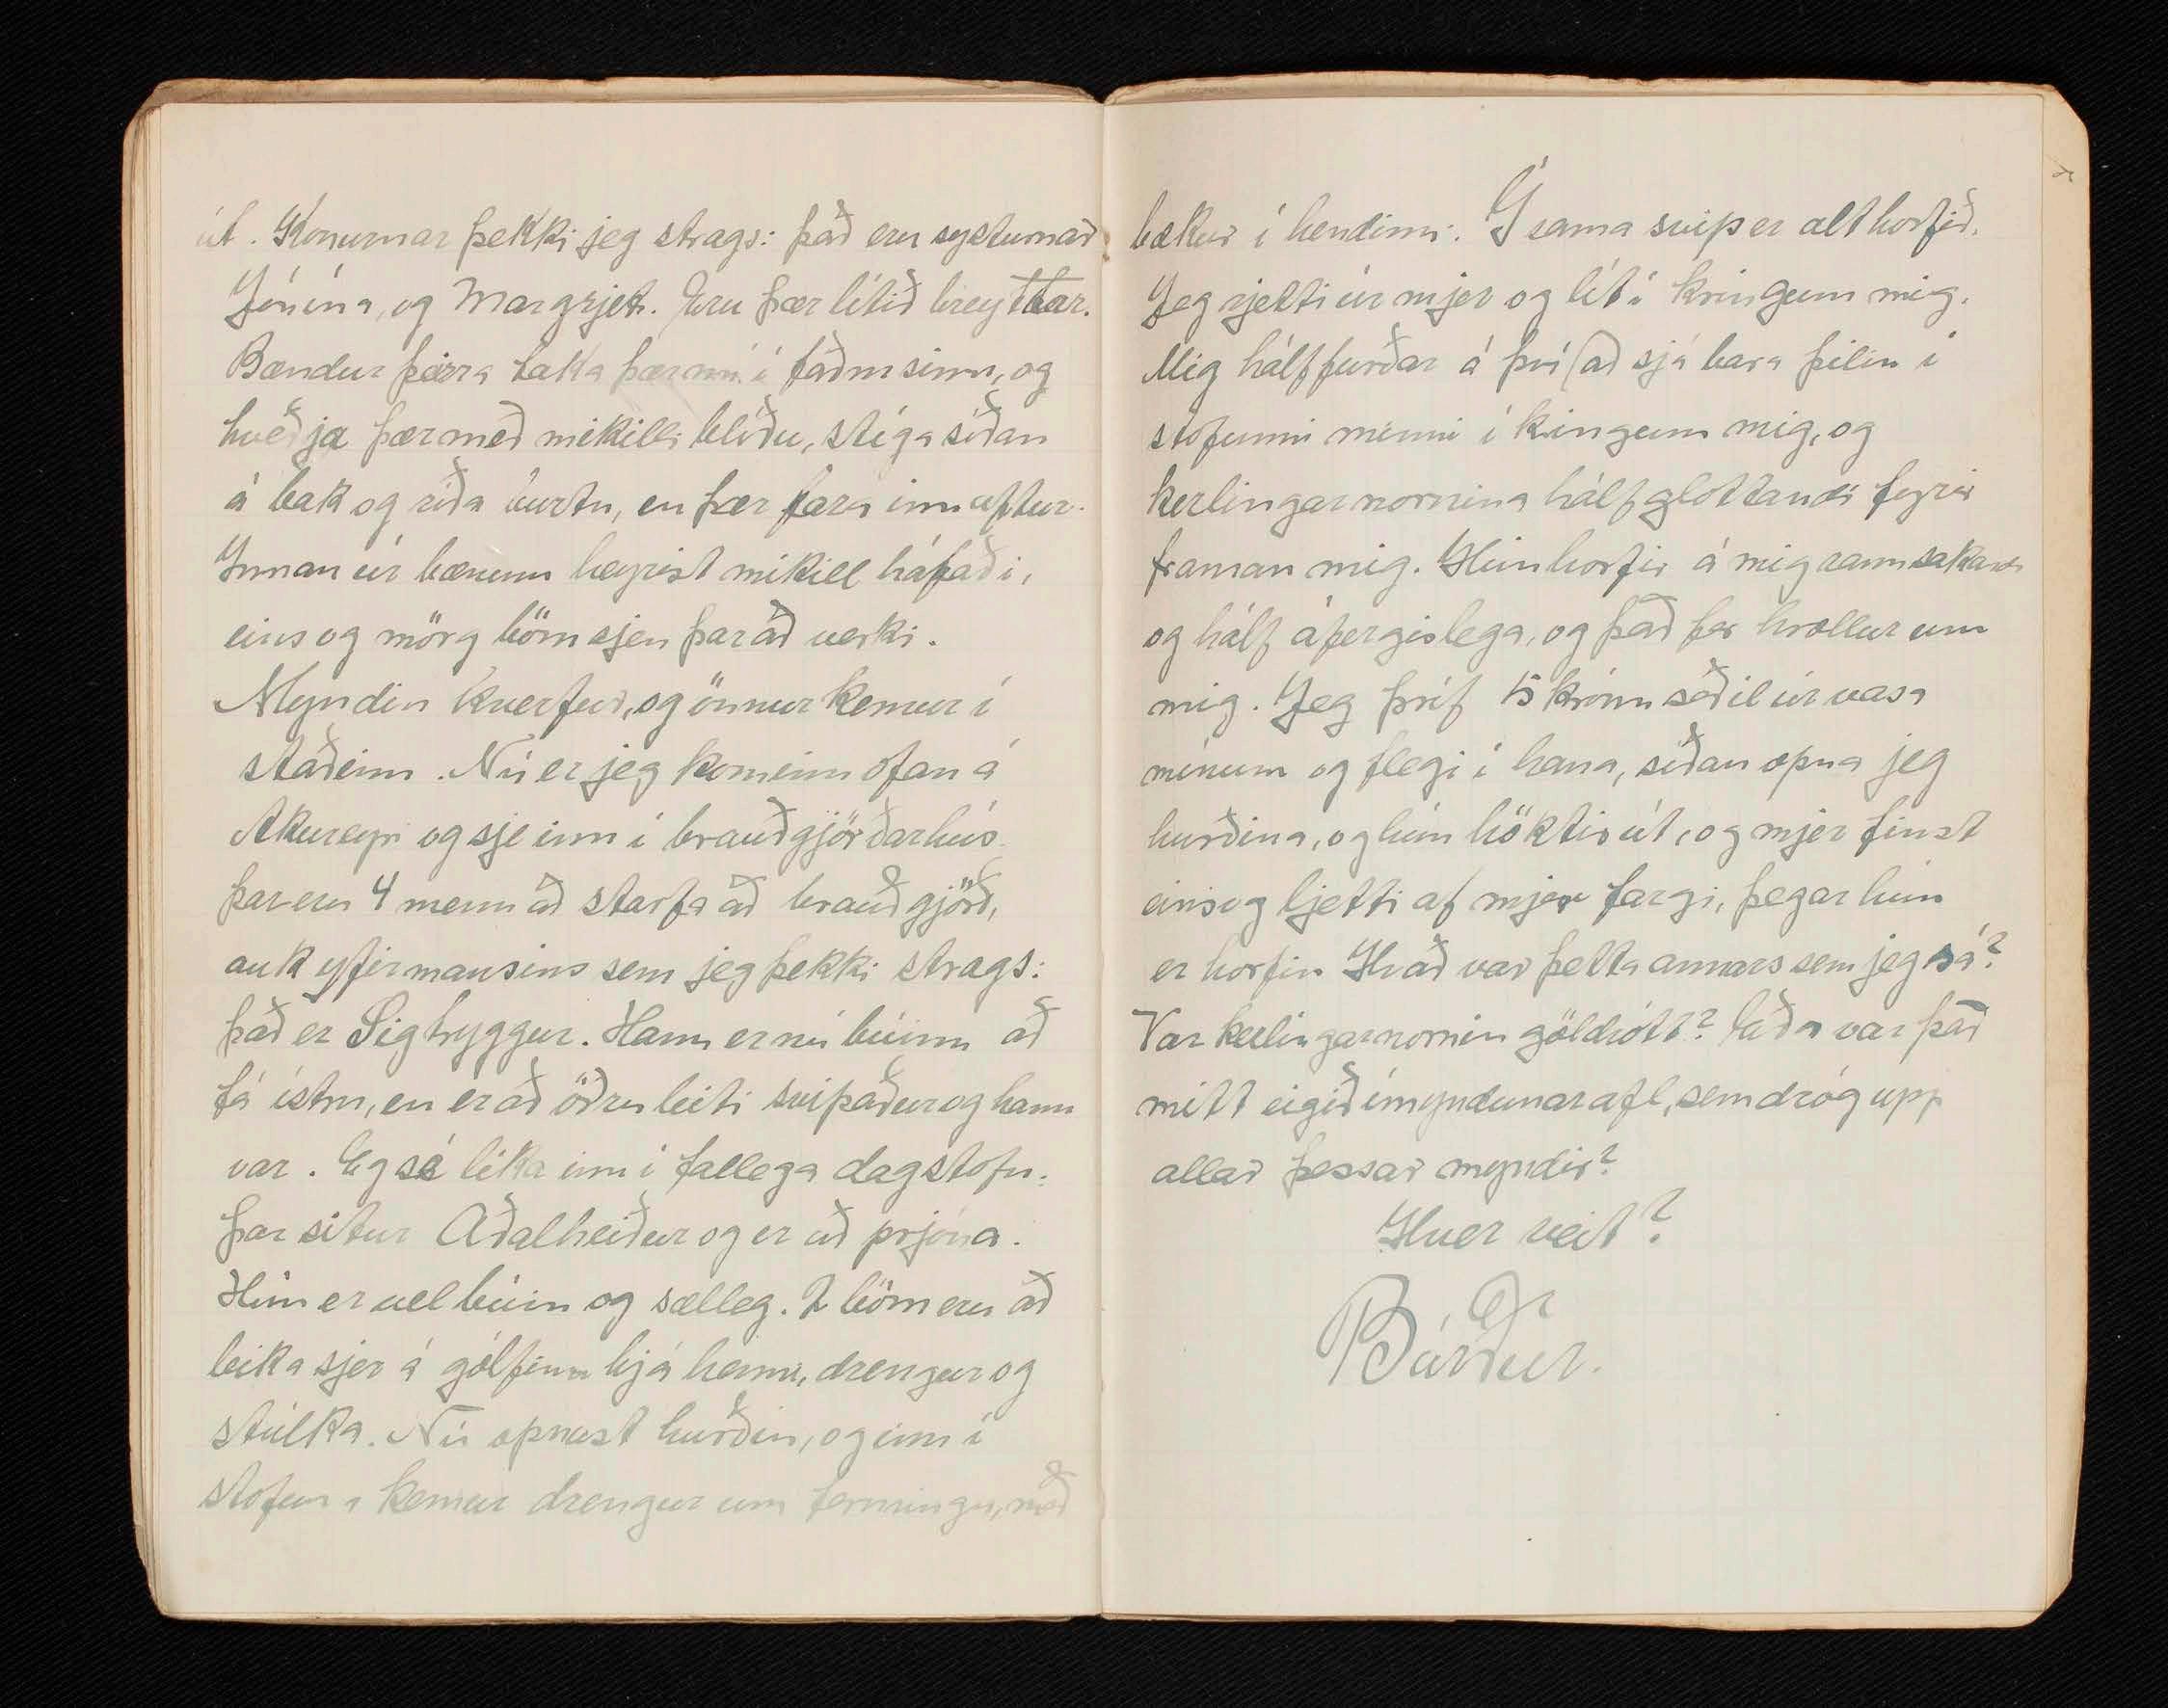 út. Konurnar þekki jeg strags: það eru systurnar
Jónína, og Margrjet. Eru þær lítið breyttar.
Bændur þeirra taka þær nú í faðm sinn, og
kveðja þær með mikilli blíðu, stíga síðan
á bak og ríða burtu, en þær fara inn aftur.
Innan úr bænum heyrist mikill háfaði,
eins og mörg börn sjeu þar að verki.
Myndin hverfur, og önnur kemur í
staðinn. Nú er jeg kominn ofan á
Akureyri og sje inn í brauðgjörðarhús.
þar eru 4 menn að starfa að brauðgjörð,
auk yfirmansins sem jeg þekki strags:
það er Sigtryggur. Hann er nú búinn að
fá ístru, en er að öðru leiti svipaður og hann
var. Eg sé líka inn í fallega dagstofu.
þar situr Aðalheiður og er að prjóna.
Hún er vel búin og sælleg. 2 börn eru að
leika sjer á gólfinu hjá henni, drengur og
stúlka. Nú opnast hurðin, og inn í
stofuna kemur drengur um fermingu, með
bækur í hendinni. Í sama svip er alt horfið.
Jeg rjetti úr mjer og lít í kringum mig.
Mig hálf furðar á því að sjá bara þilin í
stofunni minni í kingum mig, og
kerlingarnornina hálf glottandi fyrir
framan mig. Hún horfir á mig rannsakandi
og hálf áfergislega, og það fer hrollur um
mig. Jeg þríf 15 krónu seðil úr vasa
mínum og flegi í hana, síðan opna jeg
hurðina, og hún höktir út, og mjer finst
eins og ljetti af mjer fargi, þegar hún
er horfin Hvað var þetta annars sem jeg sá?
Var kerlingarnornin göldrótt? Eða var það
mitt eigið ímyndunarafl, sem dróg upp
allar þessar myndir?
Hver veit?
Bárður.